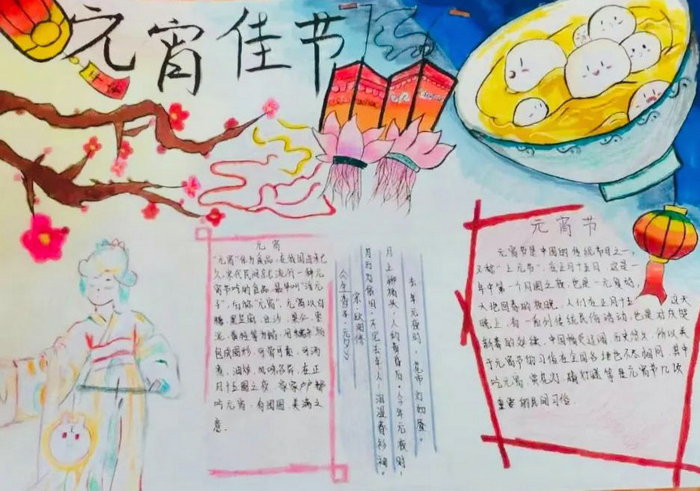 元宵佳节
元宵
"元宵"作为食品,在我国由来已
久,宋代民间即流行一种元
宵节吃的食品,最早叫"浮元
子",后称"元宵",元宵以白
糖、黑豆麻、豆沙、果仁、枣
泥、黄桂等为馅,用糯米粉
包成圆形,可荤可素,可汤
煮、油炸、风味各异,在正
月十五圆之夜,家家户户都
吃元宵,有团圆、美满之
意。
去年元夜时,花市灯如昼。
月上柳梢头,人约黄昏后。今年元夜时,
月与灯依旧。不见去年人,泪湿春衫袖。
宋·欧阳修
《生查子·元夕》
元宵节
元宵节是中国的传统节日之一,
又称"上元节",在正月十五日,这是一
年中第一个月圆之夜,也是一元复始、
大地回春的夜晚,人们在正月十五这天
晚上,有一系列传统民俗活动,也是对庆贺
新春的延续。中国幅员辽阔,历史悠久,所以关
于元宵节的习俗在全国各地也不尽相同,其中
吃元宵、赏花灯、猜灯谜等是元宵节几项
重要的民间习俗。